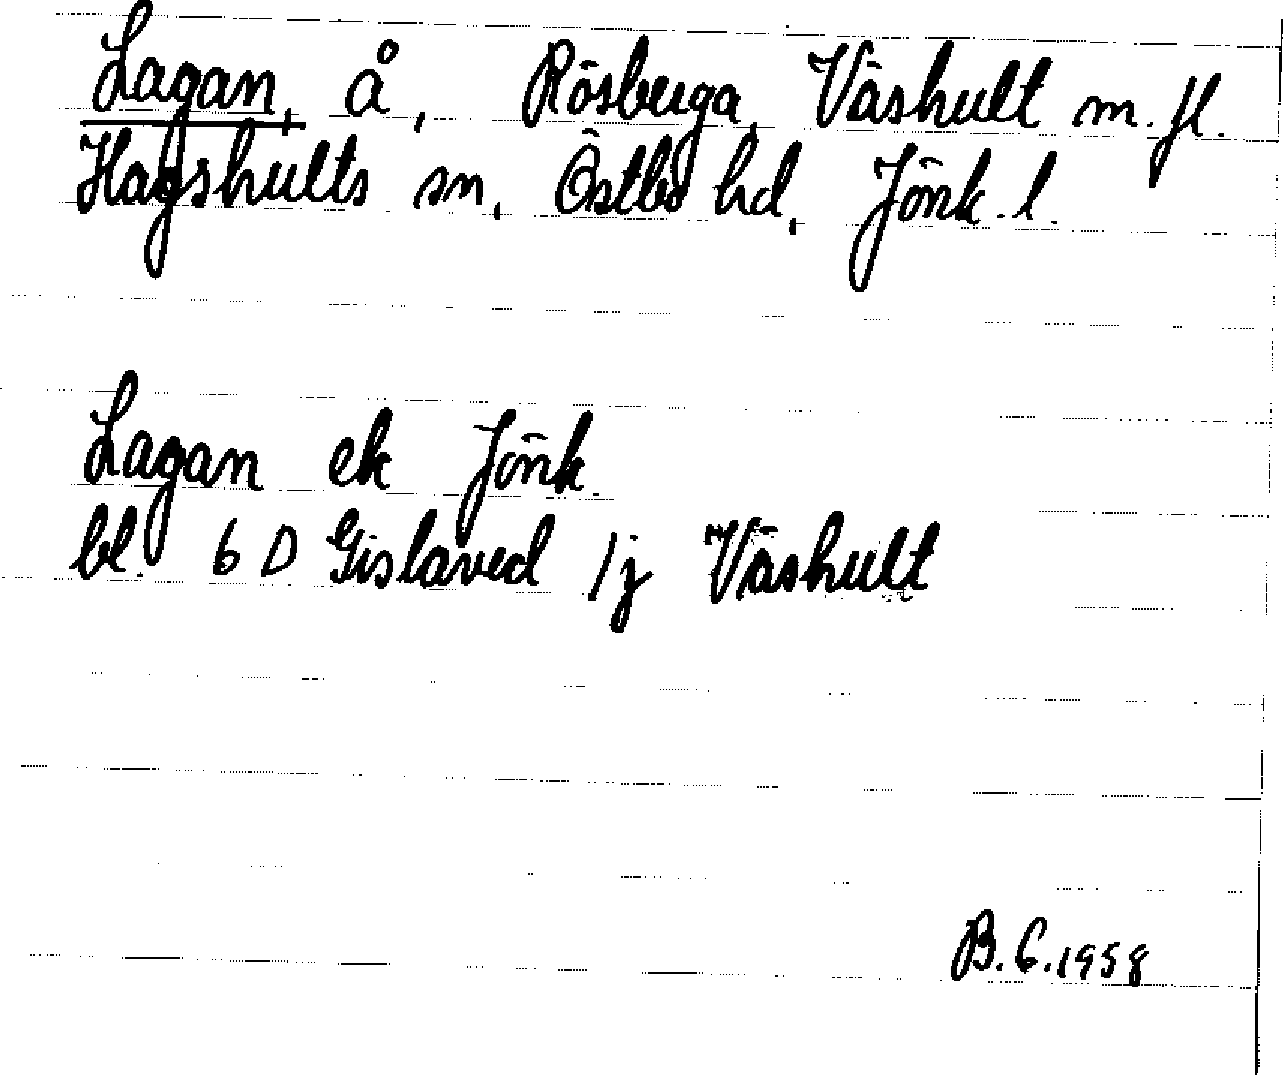 Lagan, å, Rösberga, Väshult m. fl.
Hagshults sn, Östbo hd, Jönk. l.
Lagan ek Jönk.
bl. 6 D Gislaved 1j Väshult
B.G. 1958